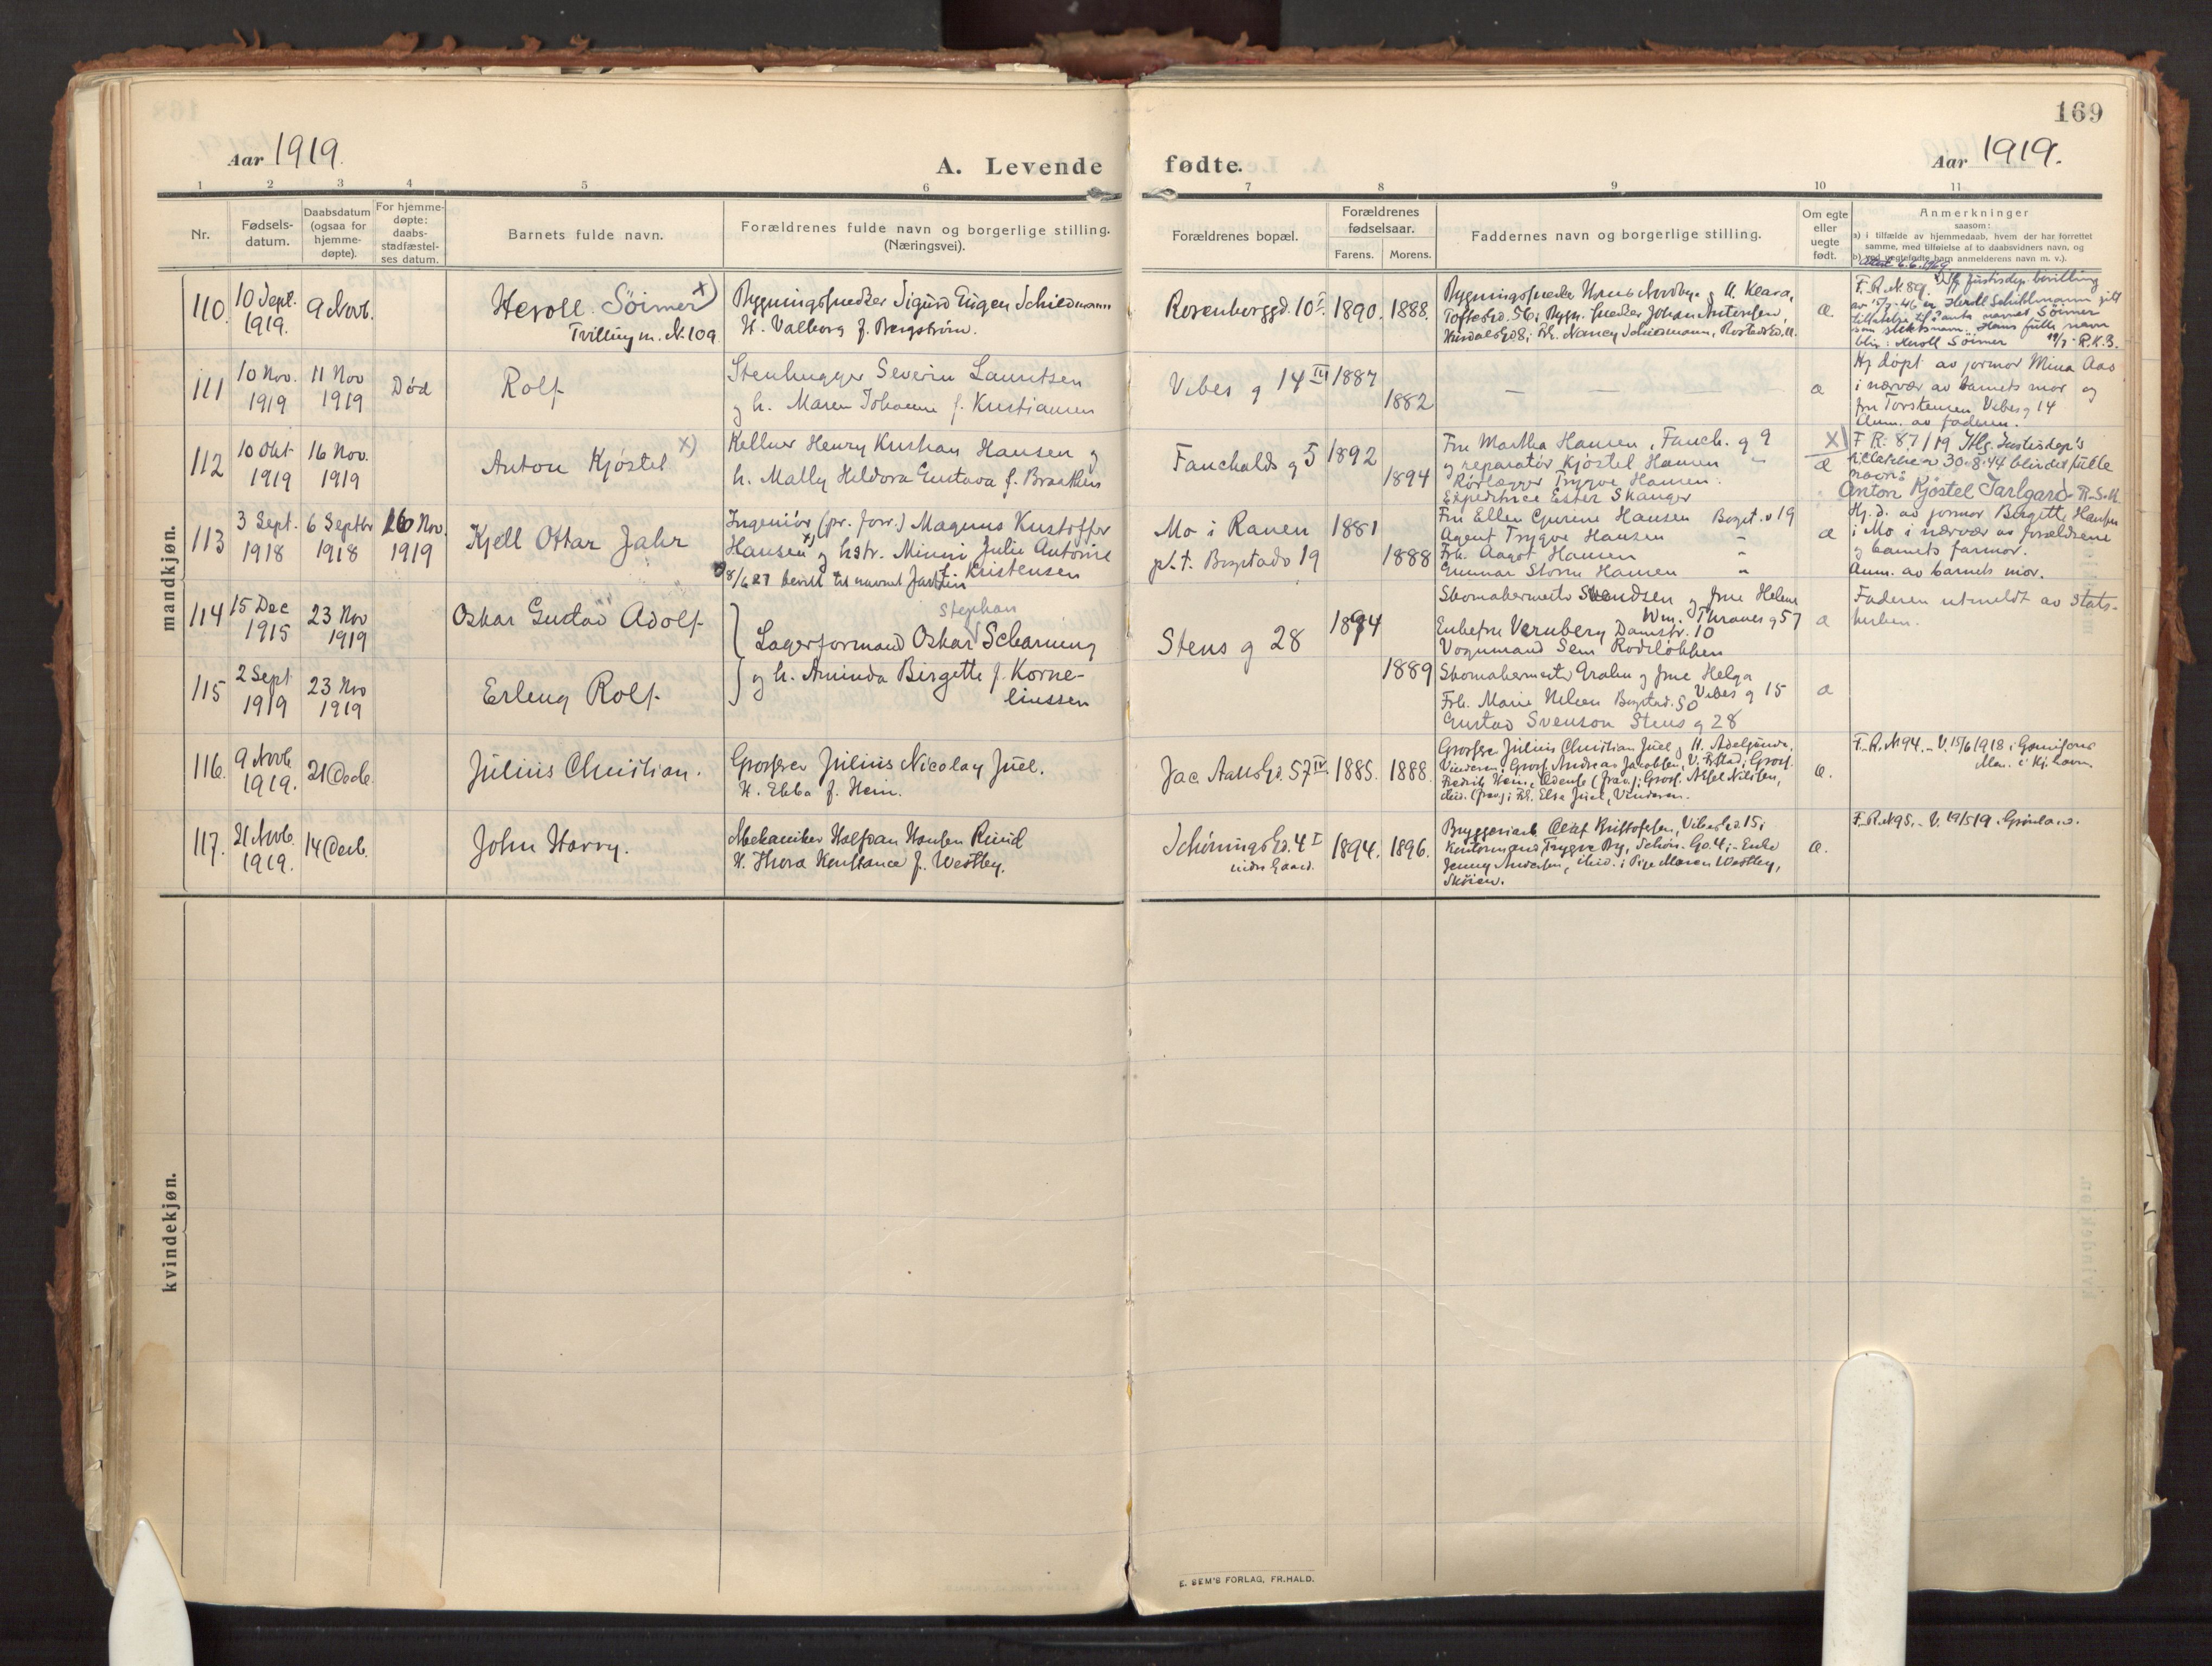 169
Aar 1919.
A. Levende fødte.
Aar 1919.
1 2 3 4 5 6 7 8 9 10 11
Nr.
Fødsels-
datum.
Daabsdatum
(ogsaa for
hjemme-
døpte).
For hjemme-
døpte:
daabs-
stadfæstel-
ses datum.
Barnets fulde navn.
Forældrenes fulde navn og borgerlige stilling.
(Næringsvei).
Forældrenes bopæl.
Forældrenes
fødselsaar.
Farens. Morens.
Faddernes navn og borgerlige stilling.
Om egte
eller
uegte
født.
Anmerkninger
saasom:
a) i tilfælde av hjemmedaab, hvem der har forrettet
samme, med tilføielse af to daabsvidners navn, og
b) ved uegtefødte barn anmelderens navn m. v.).
mandkjøn.
110.
10 Sept.
1919.
9 Novb.
Heroll Söimer x)
Tvilling m. N. 109
Bygningssnedker Sigurd Eugen Schieldmann
H. Valborg f. Bergström.
Rosenborggd. 10 I.
1890. 1888.
Bygningssnedker Hans Nordbye og H. Klara,
Toftesgd. 56; Bygn. snedker Johan Antonsen,
Frk. Nancy
æ.
Attest 6.6.1969
F.R.N.89. x) Iflg Justisdep. bevilling
av 15/7-46 er Heroll Schieldmann gitt
tillatelse til å anta navnet Söimer
som slektsnavn. Hans fulle navn
blir: Heroll Söimer 19/7- R.K.B.
111
10 Nov.
1919
11 Nov
1919
Død
Rolf
Stenhugger Severin Lauritsen
og h. Maren Johanne f. Kristiansen
Vibes g 14 IV
1887
1882
— — —
æ
Hj døpt av jormor Mina Aas
i nærvær av barnets mor og
fru Torstensen Vibes g 14
Anm. av faderen.
112
10 Okt
1919
16 Nov.
1919
Anton Kjøstel x)
Kellner Henry Kristian Hansen og
h. Mally Heldora Gustava f. Braathen
Fauchalds g 5
1892
1894
Fru Martha Hansen, Fauch. g 9
og reparatør Kjøstel Hansen "
Rørlægger Trygve Hansen.
Expeditrice Ester Skanger
x)
æ
F R: 87/19 Iflg. Justisdep's
av 30.8.44 blir det fulle
navn:
Anton Kjøstel Jarlgard R.S.M.
113
3 Sept.
1918
6 Septbr
1918
16 Nov.
1919
Kjell Ottar Jahr
Ingeniør (pr. forr.) Magnus Kristoffer
Hansen x) og hstr. Minni Julie Antonie
f. Kristensen
8/6 27 bevill. til navnet
Mo i Ranen
p. t. Bogstadv 19
1881
1888
Fru Ellen Gurine Hansen Bogst. v 19
Agent Trygve Hansen "
Frk. Aagot Hansen "
Gunnar Storm Hansen "
æ
Hj. d. av jormor Birgitte Hansen
i Mo i nærvær av forældrene
og barnets farmor.
Anm. av barnets mor.
114
15 Dec
1915
23 Nov
1919
Oskar Gustav Adolf
stephan
Lagerformand Oskar Scharning
og h. Aminda Birgette f. Korne-
liussen
Stens g 28
1894
1889
Skomakermester Svendsen og frue Helene
Wm. Thranes g 57
Enkefru Vernberg Damstr. 10
Vognmand Sem Rodeløkken
æ
Faderen utmeldt av stats-
kirken.
115
2 Sept
1919
23 Nov
1919
Erling Rolf
Skomakermester Grahn og frue Helga
Vibes g 15
Frk. Marie Nelsen Bogstad. 50
Gustav Svenson Stens g 28
æ
116.
9 Novb.
1919.
21 Decb.
Julius Christian.
Grosserer Julius Nicolay Juel.
H. Ebba f. Hein.
Jac Aalls Gd. 57 IV.
1885. 1888.
Grosserer Julius Christian Juel og H. Adelgunde,
Vinderen; Gross. Andreas Jacobsen, V. Gross.
Fredrik Hein, Odense (frav.); Gross. Aksel Nielsen,
ibid. (frav.); Frk. Elsa Juel, Vinderen.
æ.
F.R.N94. – V. 15/6 1918 i Garnisons
Men. i Kj.havn.
117.
21 Novb.
1919.
14 Decb.
John Harry.
Mekaniker Halfdan Hansen Rund
H. Thora Konstance f. Westby.
Schøningsgd. 4 I
indre Gaard.
1894. 1896.
Bryggeriarb. Olaf Kristofersen, Vibesgd. 15;
Kontormand Trygve By, Schøn. Gd. 4; Enke
Jenny Andersen, ibid.; Pige Maren Westby,
Skøien.
æ.
F.R.N95. – V. 19/5 19. Grønland.
kvindekjøn.
E. SEM'S FORLAG, FR.HALD.